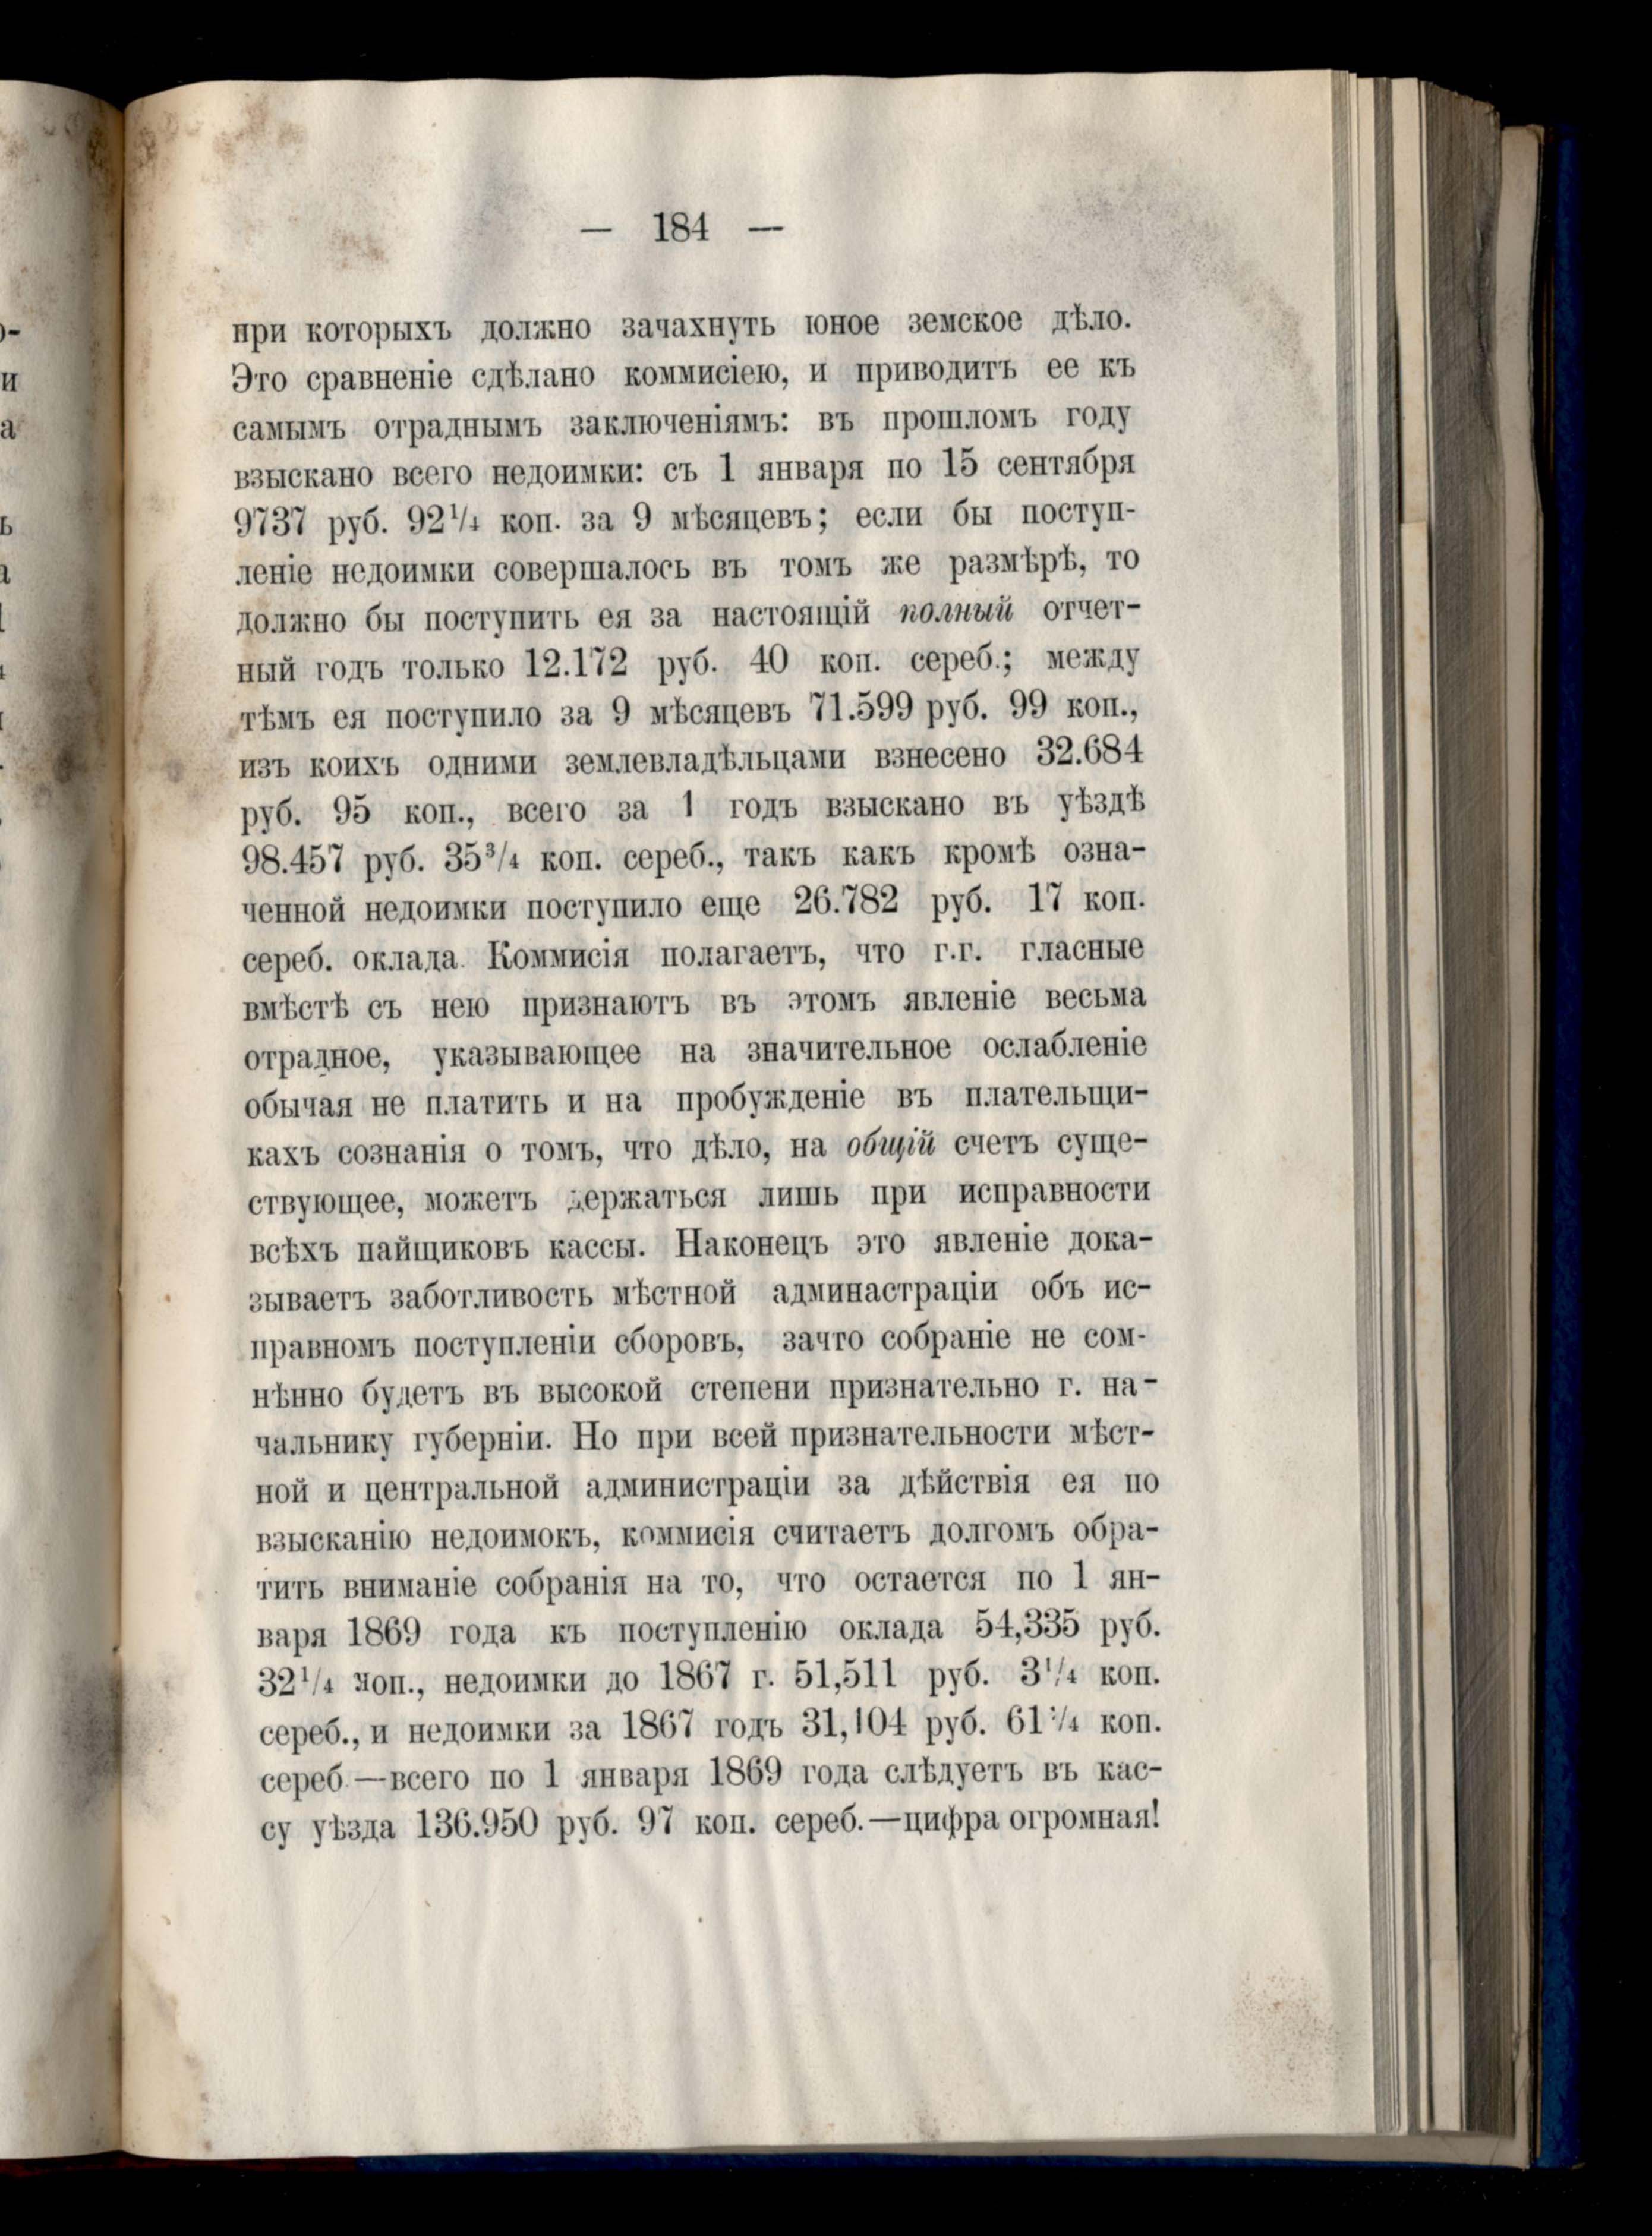 — 184 —
при которыхъ должно зачахнуть юное земское дѣло.
Это сравненіе сдѣлано коммисіею, и приводитъ ее къ
самымъ отраднымъ заключеніямъ: въ прошломъ году
взыскано всего недоимки: съ 1 января по 15 сентября
9737 руб. 92¼ коп. за 9 мѣсяцевъ; если бы поступ-
леніе недоимки совершалось въ томъ же размѣрѣ, то
должно бы поступить ея за настоящій полный отчет-
ный годъ только 12.172 руб. 40 коп. сереб.; между
тѣмъ ея поступило за 9 мѣсяцевъ 71.599 руб. 99 коп.,
изъ коихъ одними землевладѣльцами взнесено 32.684
руб. 95 коп., всего за 1 годъ взыскано въ уѣздѣ
98.457 руб. 35¾ коп. сереб., такъ какъ кромѣ озна-
ченной недоимки поступило еще 26.782 руб. 17 коп.
сереб. оклада. Коммисія полагаетъ, что г.г. гласные
вмѣстѣ съ нею признаютъ въ этомъ явленіе весьма
отрадное, указывающее на значительное ослабленіе
обычая не платить и на пробужденіе въ плательщи-
кахъ сознанія о томъ, что дѣло, на общій счетъ суще-
ствующее, можетъ держаться лишь при исправности
всѣхъ пайщиковъ кассы. Наконецъ это явленіе дока-
зываетъ заботливость мѣстной админастраціи объ ис-
правномъ поступленіи сборовъ, зачто собраніе не сом-
нѣнно будетъ въ высокой степени признательно г. на-
чальнику губерніи. Но при всей признательности мѣст-
ной и центральной администраціи за дѣйствія ея по
взысканію недоимокъ, коммисія считаетъ долгомъ обра-
тить вниманіе собранія на то, что остается по 1 ян-
варя 1869 года къ поступленію оклада 54,335 руб.
32¼ коп., недоимки до 1867 г. 51,511 руб. 3¼ коп.
сереб., и недоимки за 1867 годъ 31,104 руб. коп.
сереб.—всего по 1 января 1869 года слѣдуетъ въ кас-
су уѣзда 136.950 руб. 97 коп. сереб.—цифра огромная!